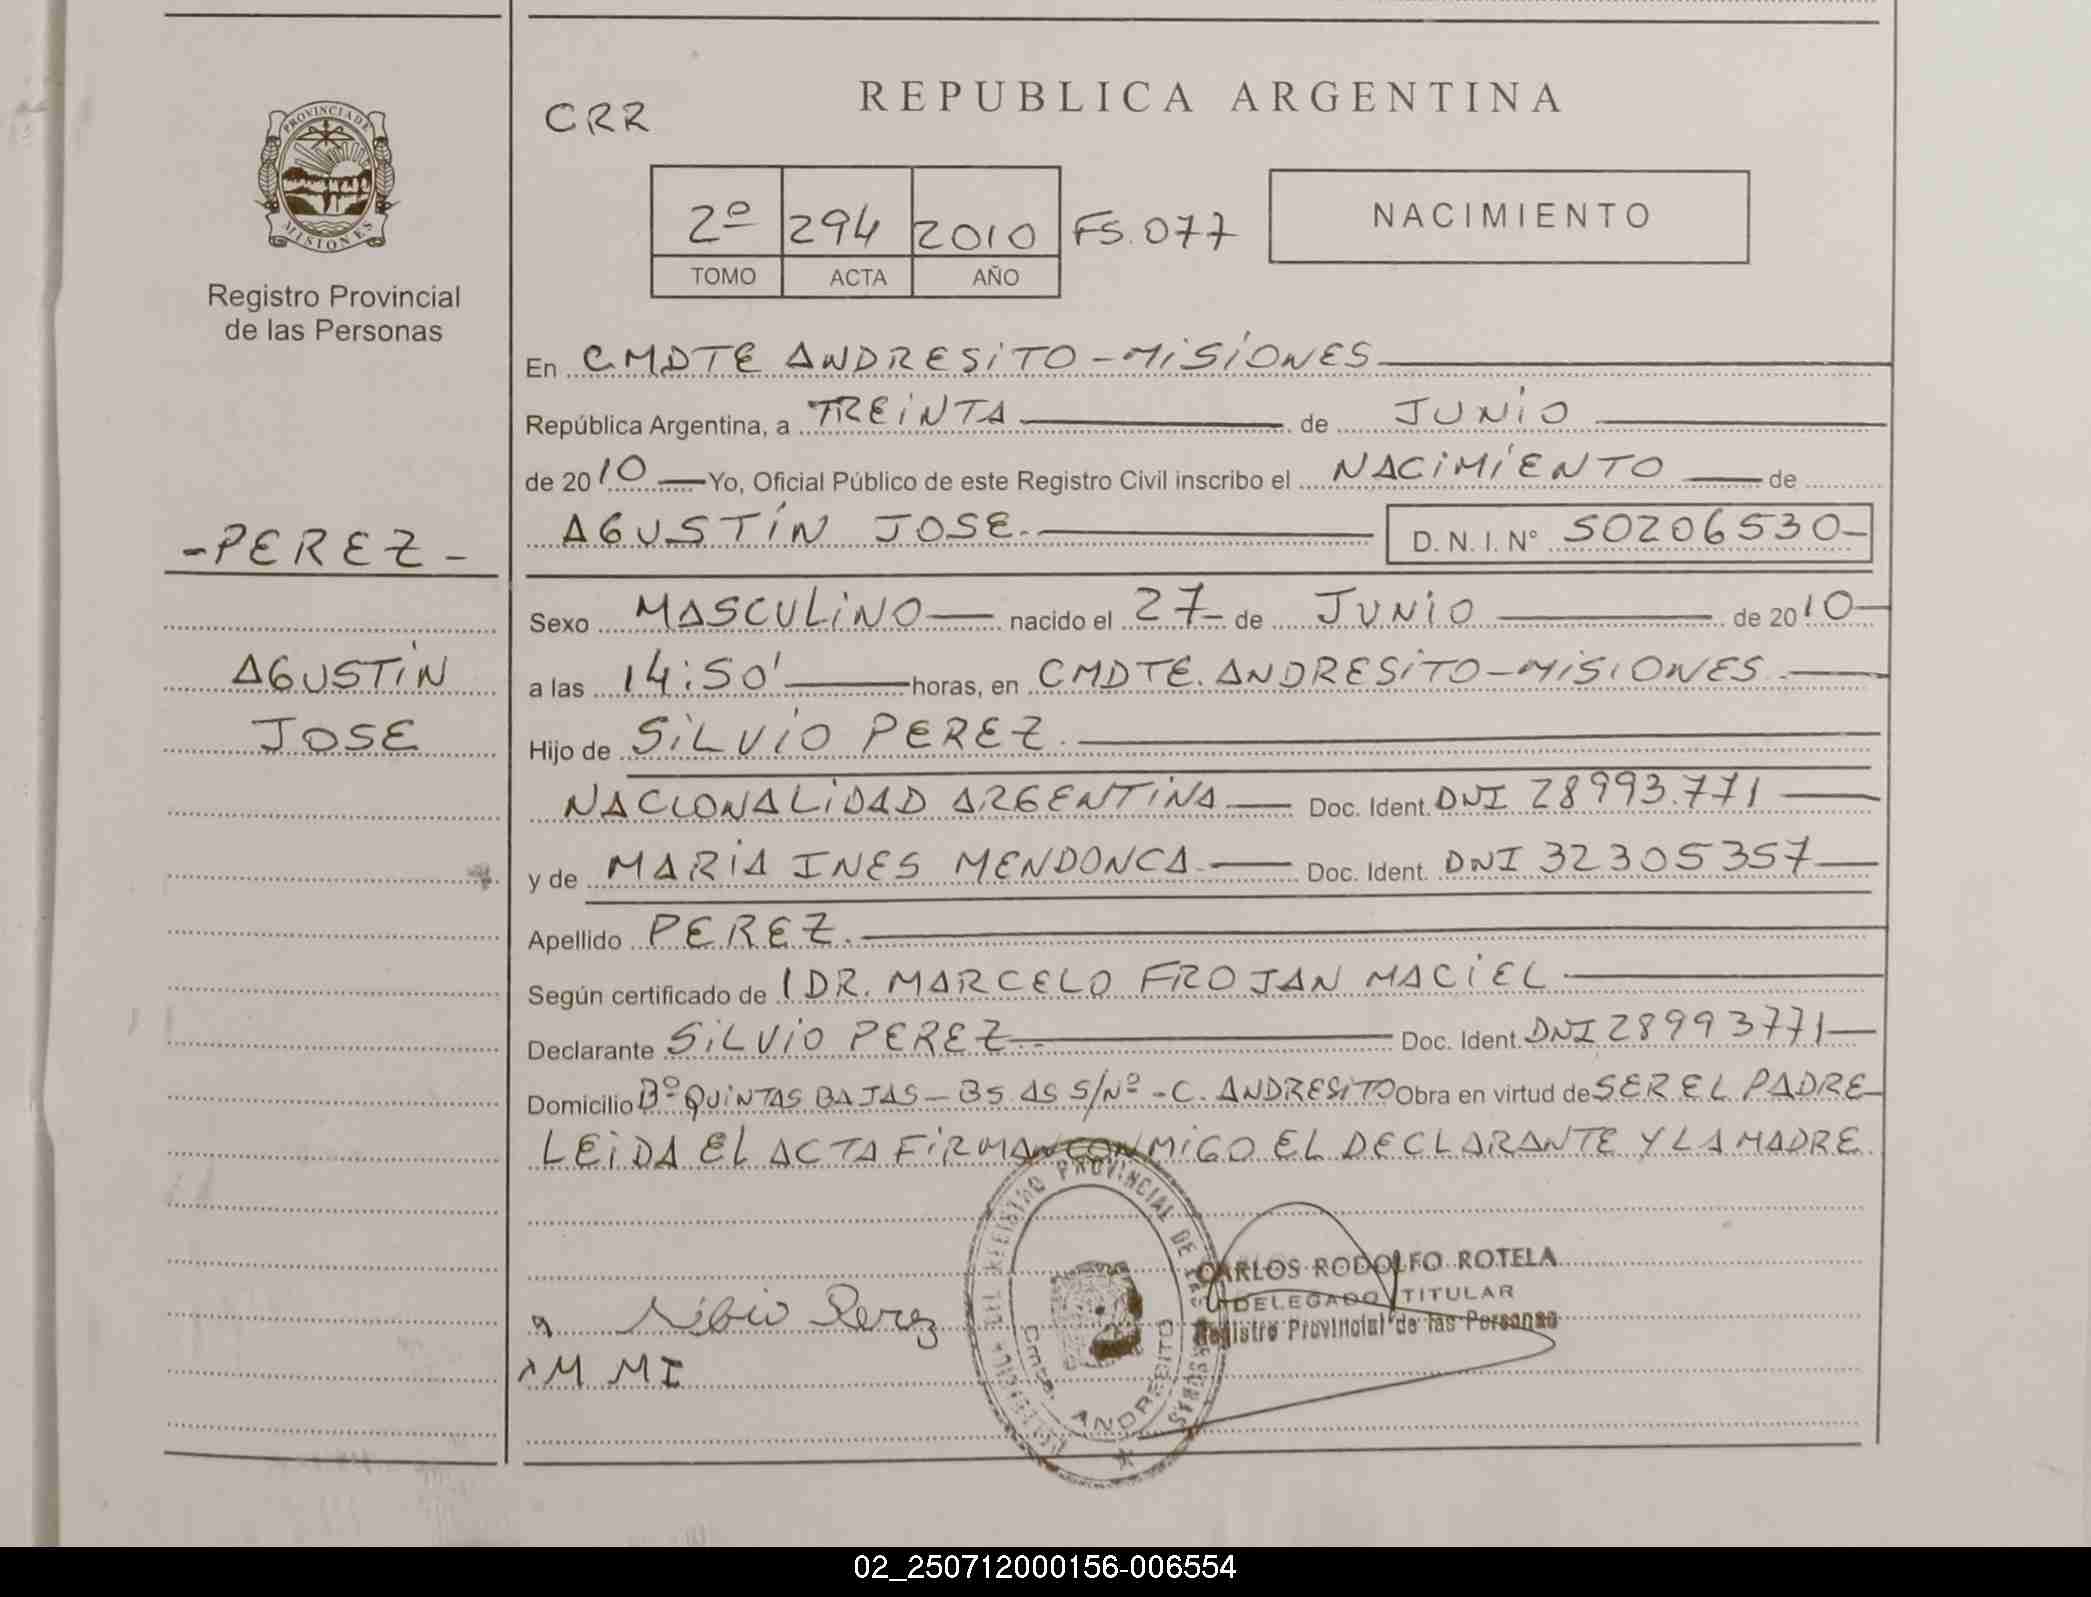 REPUBLICA ARGENTINA
CRR
PROVINCIA DE
MISIONES
Registro Provincial
de las Personas
2º 294 2010 FS. 077
TOMO ACTA AÑO
NACIMIENTO
En CMDTE ANDRESiTO - MiSiONES
República Argentina, a TREiNTA de JUNiO
de 2010 Yo, Oficial Público de este Registro Civil inscribo el NACiMiENTO de
AGUSTíN JOSE. D. N. I. N° 50206530-
-PEREZ-
AGUSTiN
JOSE
Sexo MASCULiNO nacido el 27 de JUNiO de 2010
a las 14:50' horas, en CMDTE. ANDRESiTO - MiSiONES
Hijo de SiLViO PEREZ.
NACIONALiDAD ARGENTiNA Doc. Ident. DNI 28993.771
y de MARiA INES MENDONCA Doc. Ident. DNI 32305357
Apellido PEREZ.
Según certificado de 1 DR. MARCELO FROJAN MACiEL
Declarante SiLViO PEREZ Doc. Ident. DNI 28993771
Domicilio Bº QUiNTAS BAJAS - BS AS S/Nº - C. ANDRESiTO Obra en virtud de SER EL PADRE
LEiDA EL ACTA FiRMAN CONMiGO EL DECLARANTE Y LA MADRE.
REGISTRO PROVINCIAL DE LAS PERSONAS
Cmte. ANDRESITO
CARLOS RODOLFO ROTELA
DELEGADO TITULAR
Registro Provincial de las Personas
Perez
M MI
02_250712000156-006554